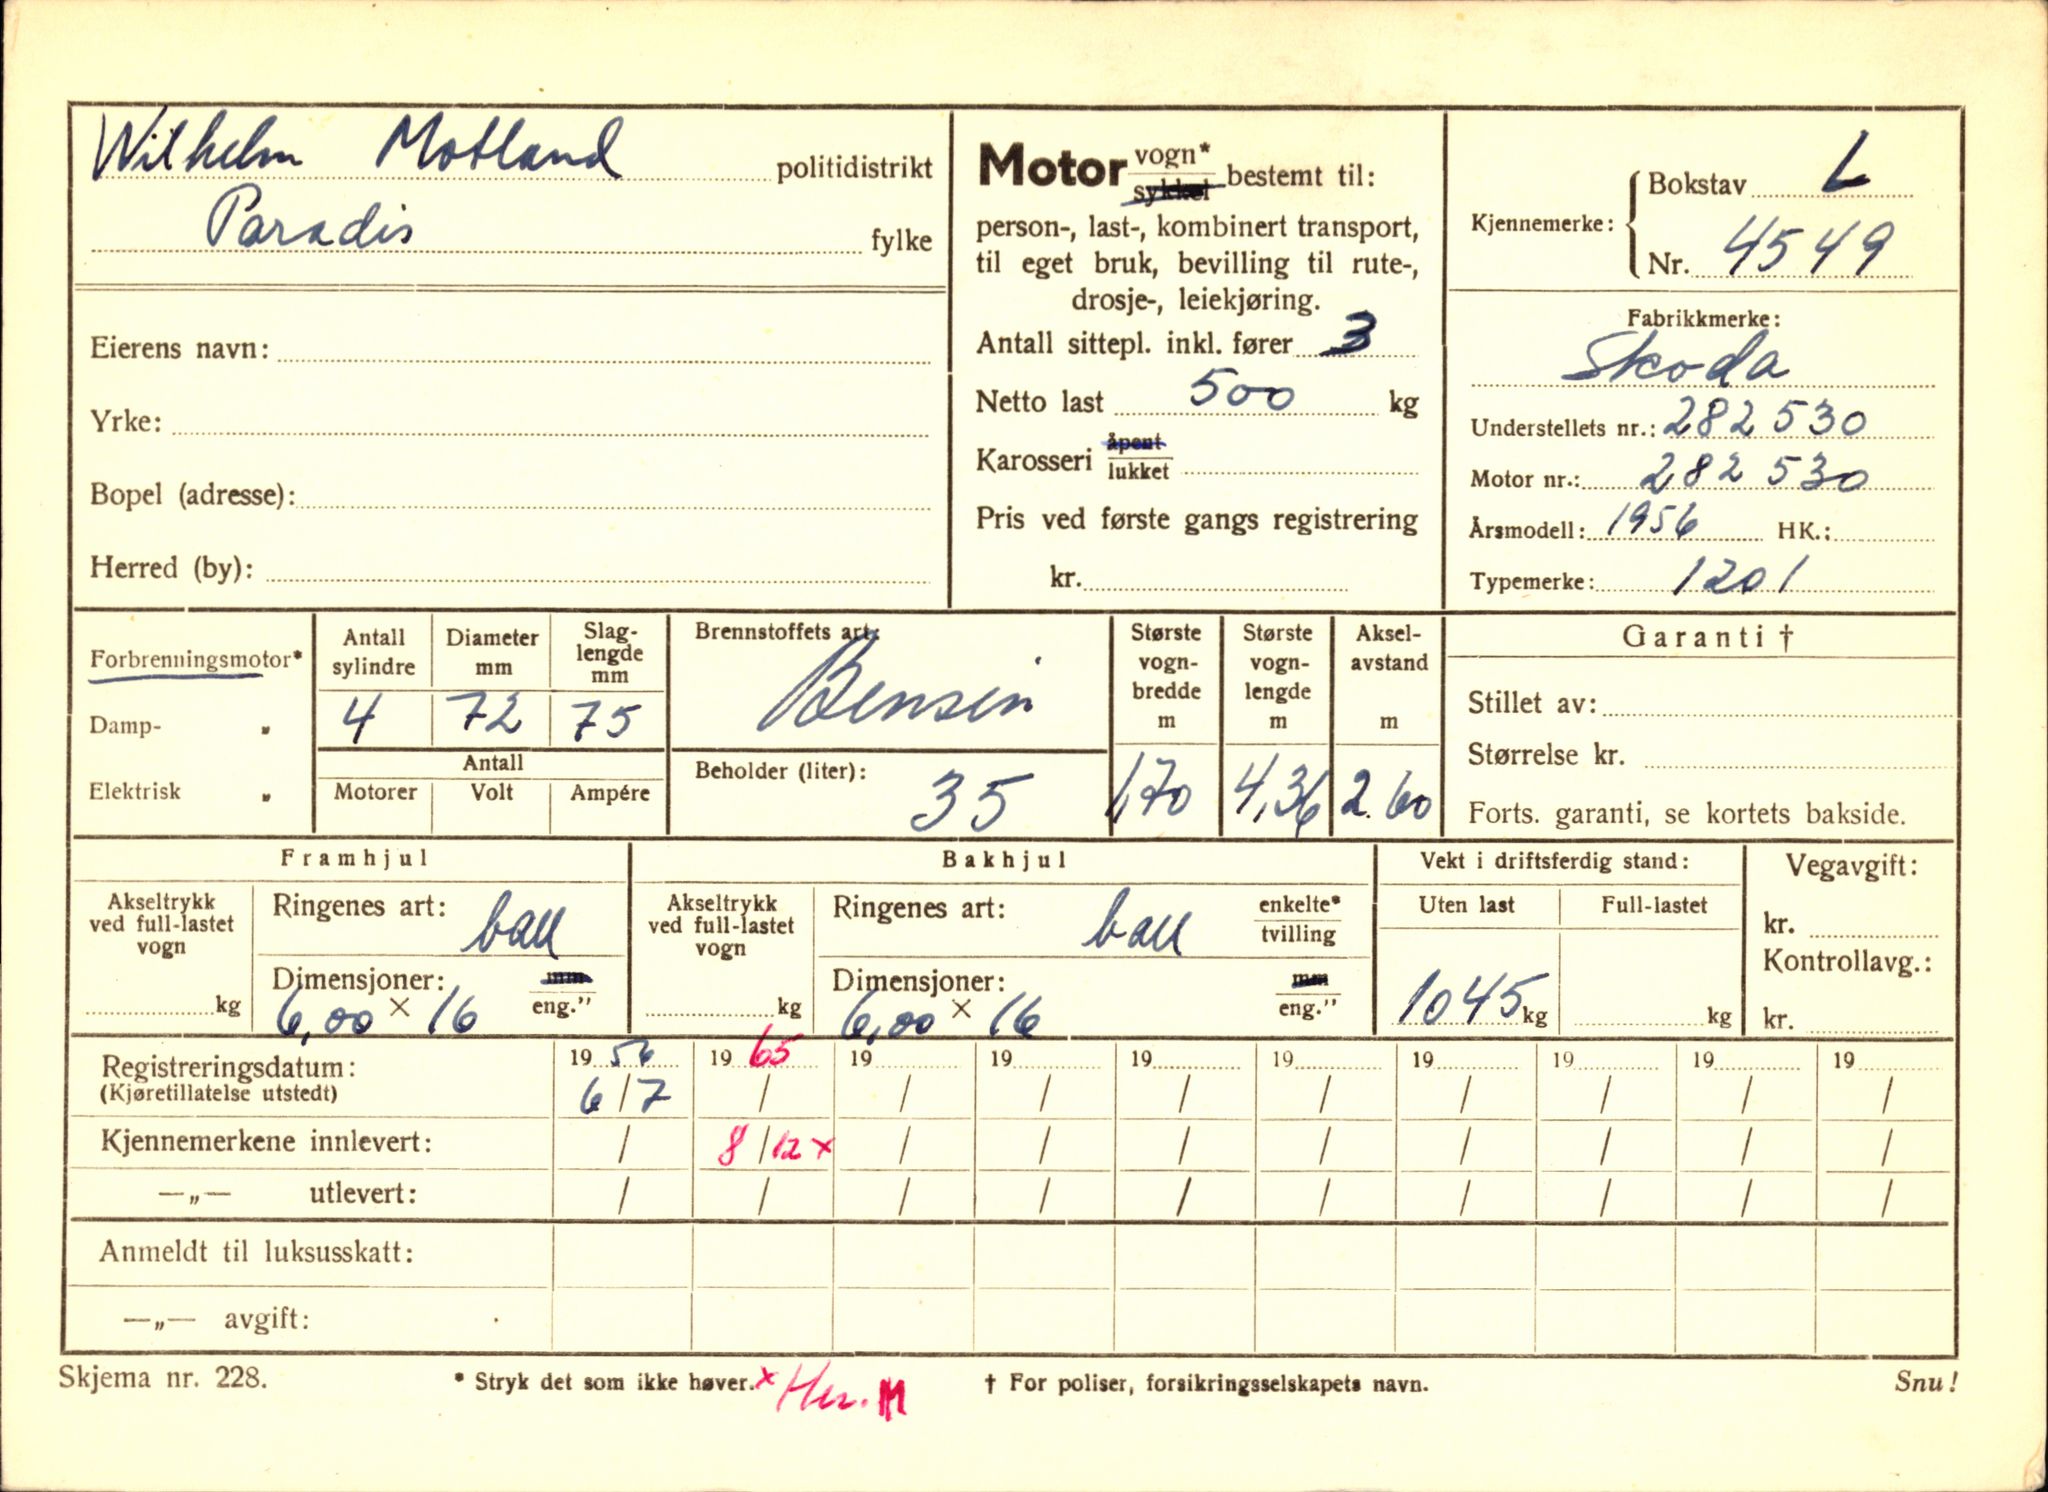 Wilhelm Motland politidistrikt
Paradis fylke
Eierens navn:
Yrke:
Bopel (adresse):
Herred (by):
Motor vogn* sykkel bestemt til:
person-, last-, kombinert transport,
til eget bruk, bevilling til rute-,
drosje-, leiekjøring.
Antall sittepl. inkl. fører 3
Netto last 500 kg
Karosseri åpent lukket
Pris ved første gangs registrering
kr.
Kjennemerke: Bokstav L
Nr. 4549
Fabrikkmerke:
Skoda
Understellets nr.: 282530
Motor nr.: 282530
Årsmodell: 1956 HK.:
Typemerke: 1201
Forbrenningsmotor*
Damp- „
Elektrisk „
Antall sylindre
4
Diameter mm
72
Slaglengde mm
75
Antall
Motorer Volt Ampére
Brennstoffets art:
Bensin
Beholder (liter):
35
Største vognbredde m
1,70
Største vognlengde m
4,36
Akselavstand m
2.60
Garanti †
Stillet av:
Størrelse kr.
Forts. garanti, se kortets bakside.
Framhjul
Akseltrykk ved full-lastet vogn
kg
Ringenes art: ball
Dimensjoner: mm eng."
6,00 × 16
Bakhjul
Akseltrykk ved full-lastet vogn
kg
Ringenes art: ball enkelte* tvilling
Dimensjoner: mm eng."
6,00 × 16
Vekt i driftsferdig stand:
Uten last Full-lastet
1045 kg kg
Vegavgift:
kr.
Kontrollavg.:
kr.
Registreringsdatum: 19 56 19 65 19 19 19 19 19 19 19 19
(Kjøretillatelse utstedt) 6/7 / / / / / / / / /
Kjennemerkene innlevert: / 8/12 x / / / / / / / /
—„— utlevert: / / / / / / / / / /
Anmeldt til luksusskatt:
—„— avgift:
Skjema nr. 228. * Stryk det som ikke høver. x Her. M † For poliser, forsikringsselskapets navn. Snu!